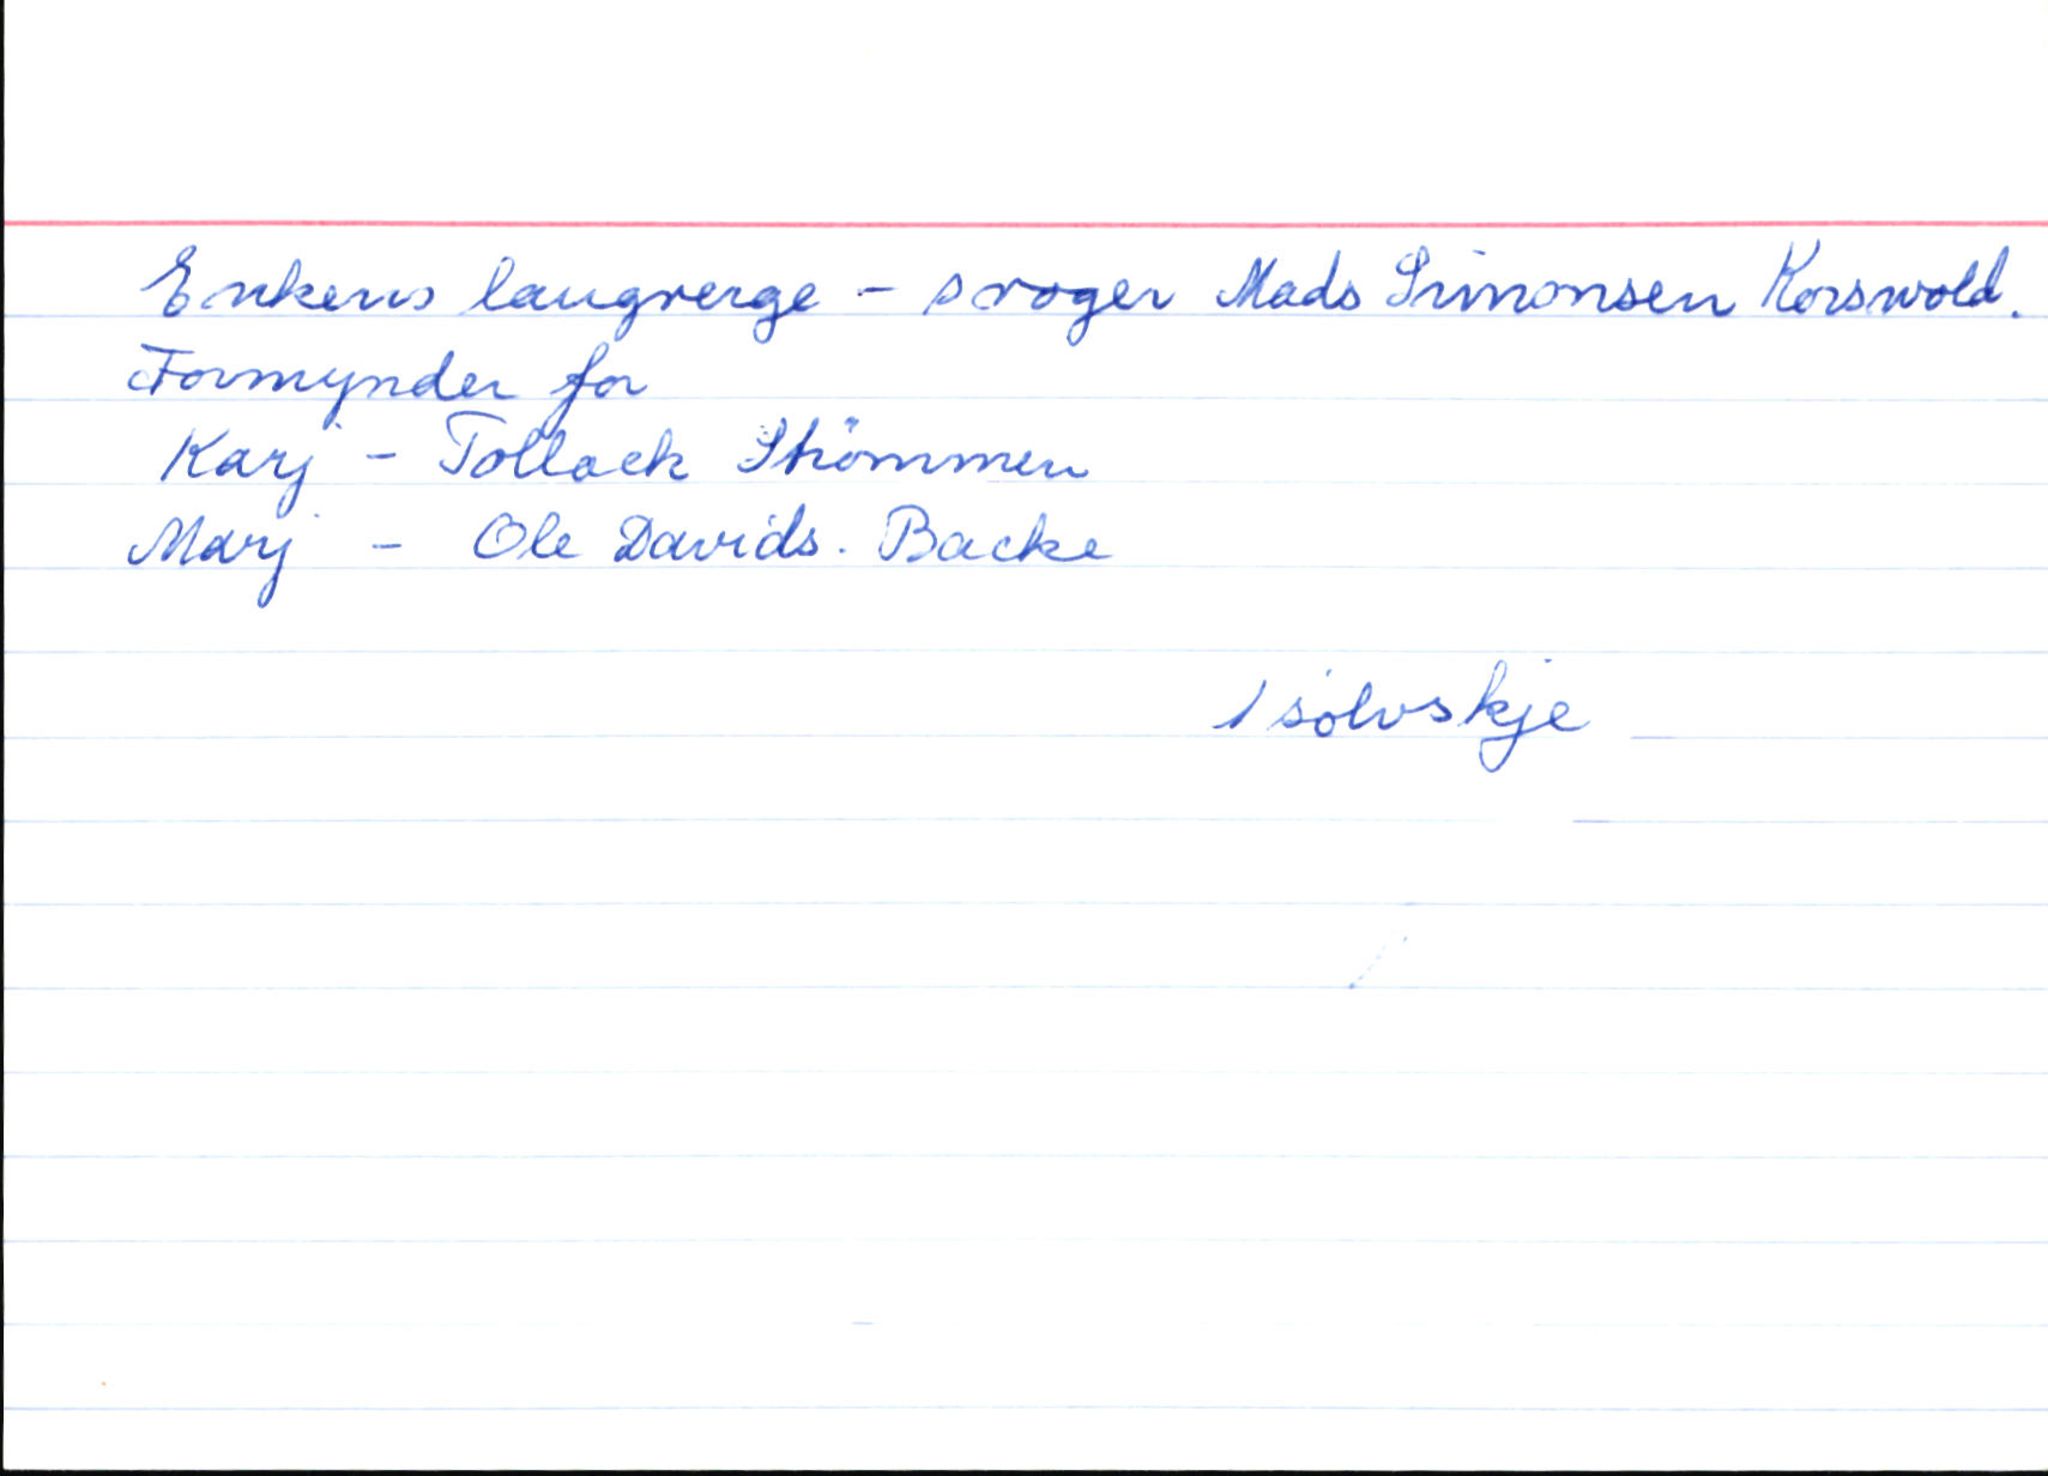 Enkens laugverge - svoger Mads Simonsen Korswold.
Formynder for
Karj - Tollack Strömmen
Marj - Ole Davids. Backe
1 sølvskje